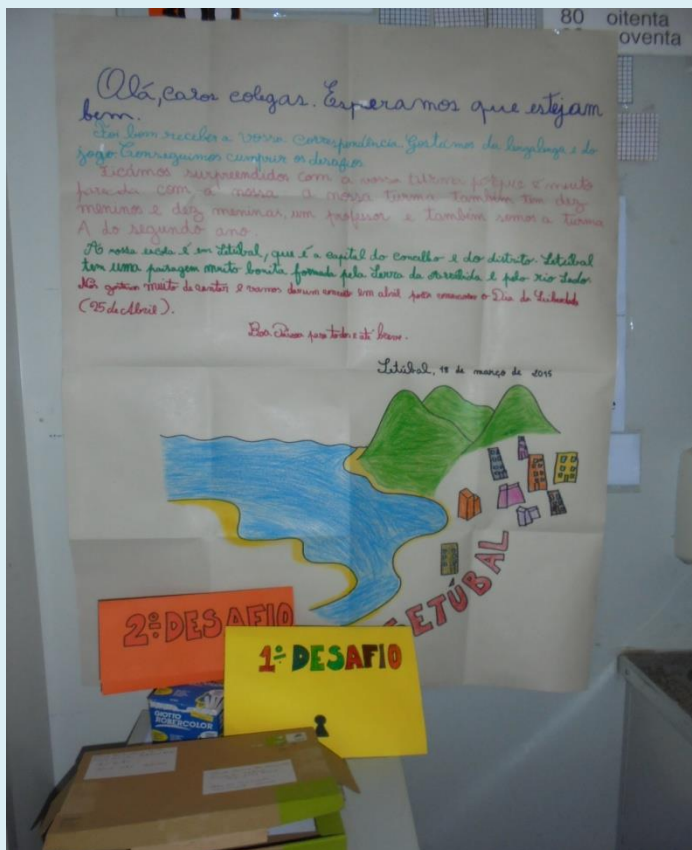 80 oitenta
oventa
Olá, caros colegas. Esperamos que estejam
bem.
Foi bom receber a vossa correspondência. Gostámos da lengalenga e do
jogo. Conseguimos cumprir os desafios.
Ficámos surpreendidos com a vossa turma porque é muito
parecida com a nossa. A nossa turma também tem dez
meninos e dez meninas, um professor e também somos a turma
A do segundo ano.
A nossa escola é em Setúbal, que é a capital do concelho e do distrito. Setúbal
tem uma paisagem muito bonita formada pela Serra da Arrábida e pelo rio Sado.
muito de cantar e vamos em abril para o Dia da Liberdade
(25 de Abril).
Boa Páscoa para todos e até breve.
Setúbal, 18 de março de 2015
SETÚBAL
2º DESAFIO
1º DESAFIO
GIOTTO
ROBERCOLOR